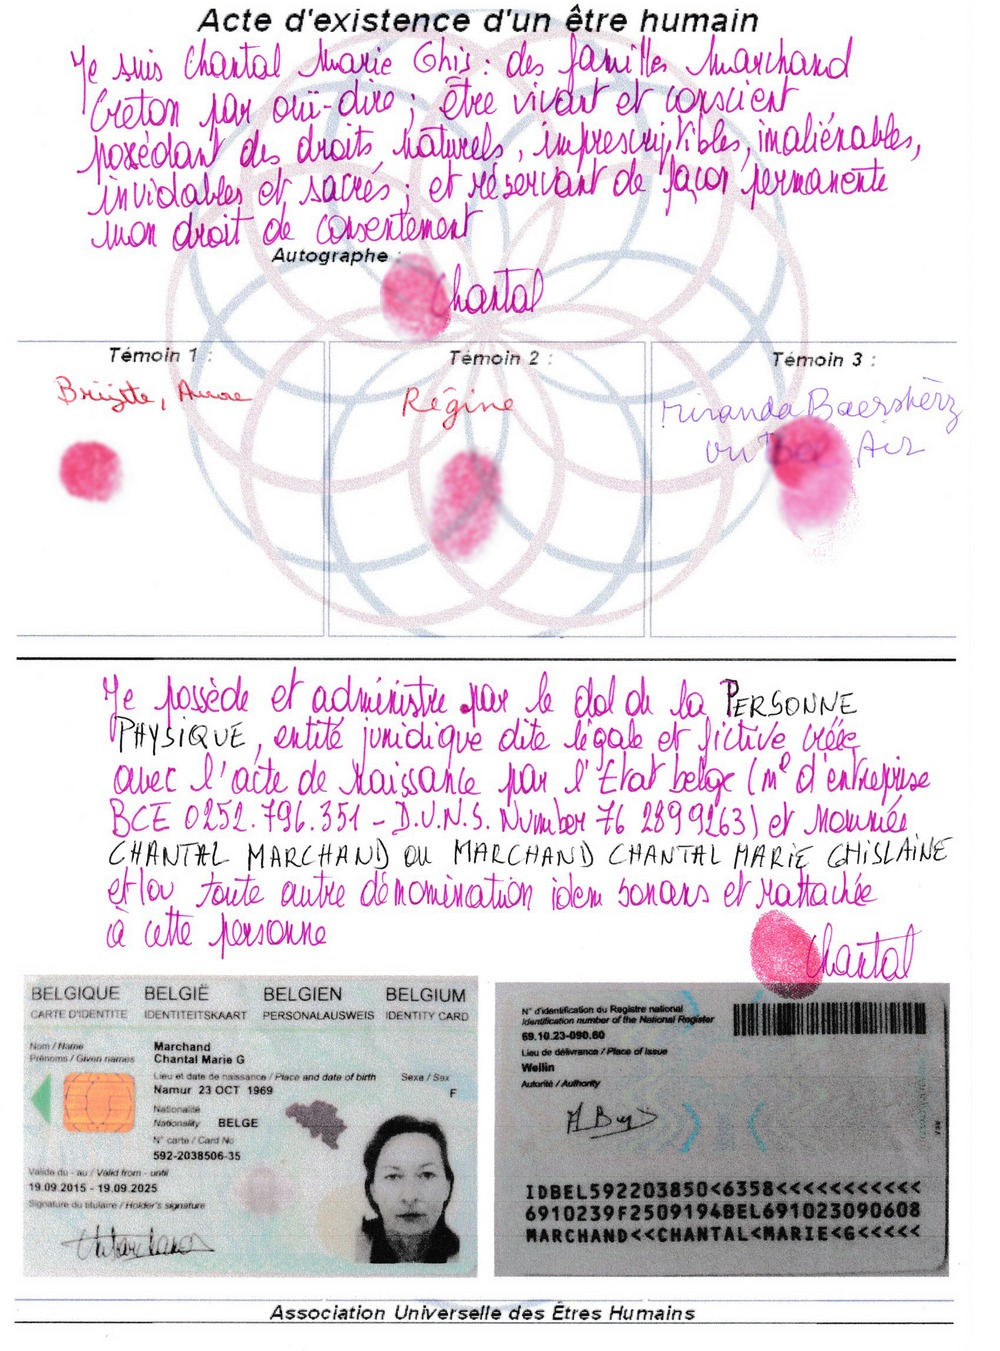 Acte d'existence d'un être humain
Je suis Chantal Marie Ghis: des familles Marchand
Creton par ouï-dire; être vivant et conscient
possédant des droits naturels, imprescriptibles, inaliénables,
inviolables et sacrés; et réservant de façon permanente
mon droit de consentement
Autographe
Chantal
Témoin 1 :
Témoin 2 :
Témoin 3 :
Brigitte,
Régine
Miranda
Je possède et administre par le dol de la PERSONNE
PHYSIQUE, entité juridique dite légale et fictive créée
avec l'acte de Naissance par l'Etat belge (n° d'entreprise
BCE 0252.796.351 - D.U.N.S. Number 76 2899263) et Nommés
CHANTAL MARCHAND OU MARCHAND CHANTAL MARIE GHISLAINE
et/ou toute autre dénomination idem sonans et rattachée
à cette personne
Chantal
BELGIQUE BELGIË BELGIEN BELGIUM
CARTE D'IDENTITE IDENTITEITSKAART PERSONALAUSWEIS IDENTITY CARD
Nom / Name
Marchand
Prénoms / Given names
Chantal Marie G
Lieu et date de naissance / Place and date of birth Sexe / Sex
Namur 23 OCT 1969 F
Nationalité
Nationality BELGE
N° carte / Card No
592-2038506-35
Valide du - au / Valid from - until
19.09.2015 - 19.09.2025
Signature du titulaire / Holder's signature
N° d'identification du Registre national
Identification number of the National Register
69.10.23-090.60
Lieu de délivrance / Place of issue
Wellin
Autorité / Authority
IDBEL592203850<6358<<<<<<<<<<<
6910239F2509194BEL691023090608
MARCHAND<<CHANTAL<MARIE<G<<<<<
Association Universelle des Êtres Humains